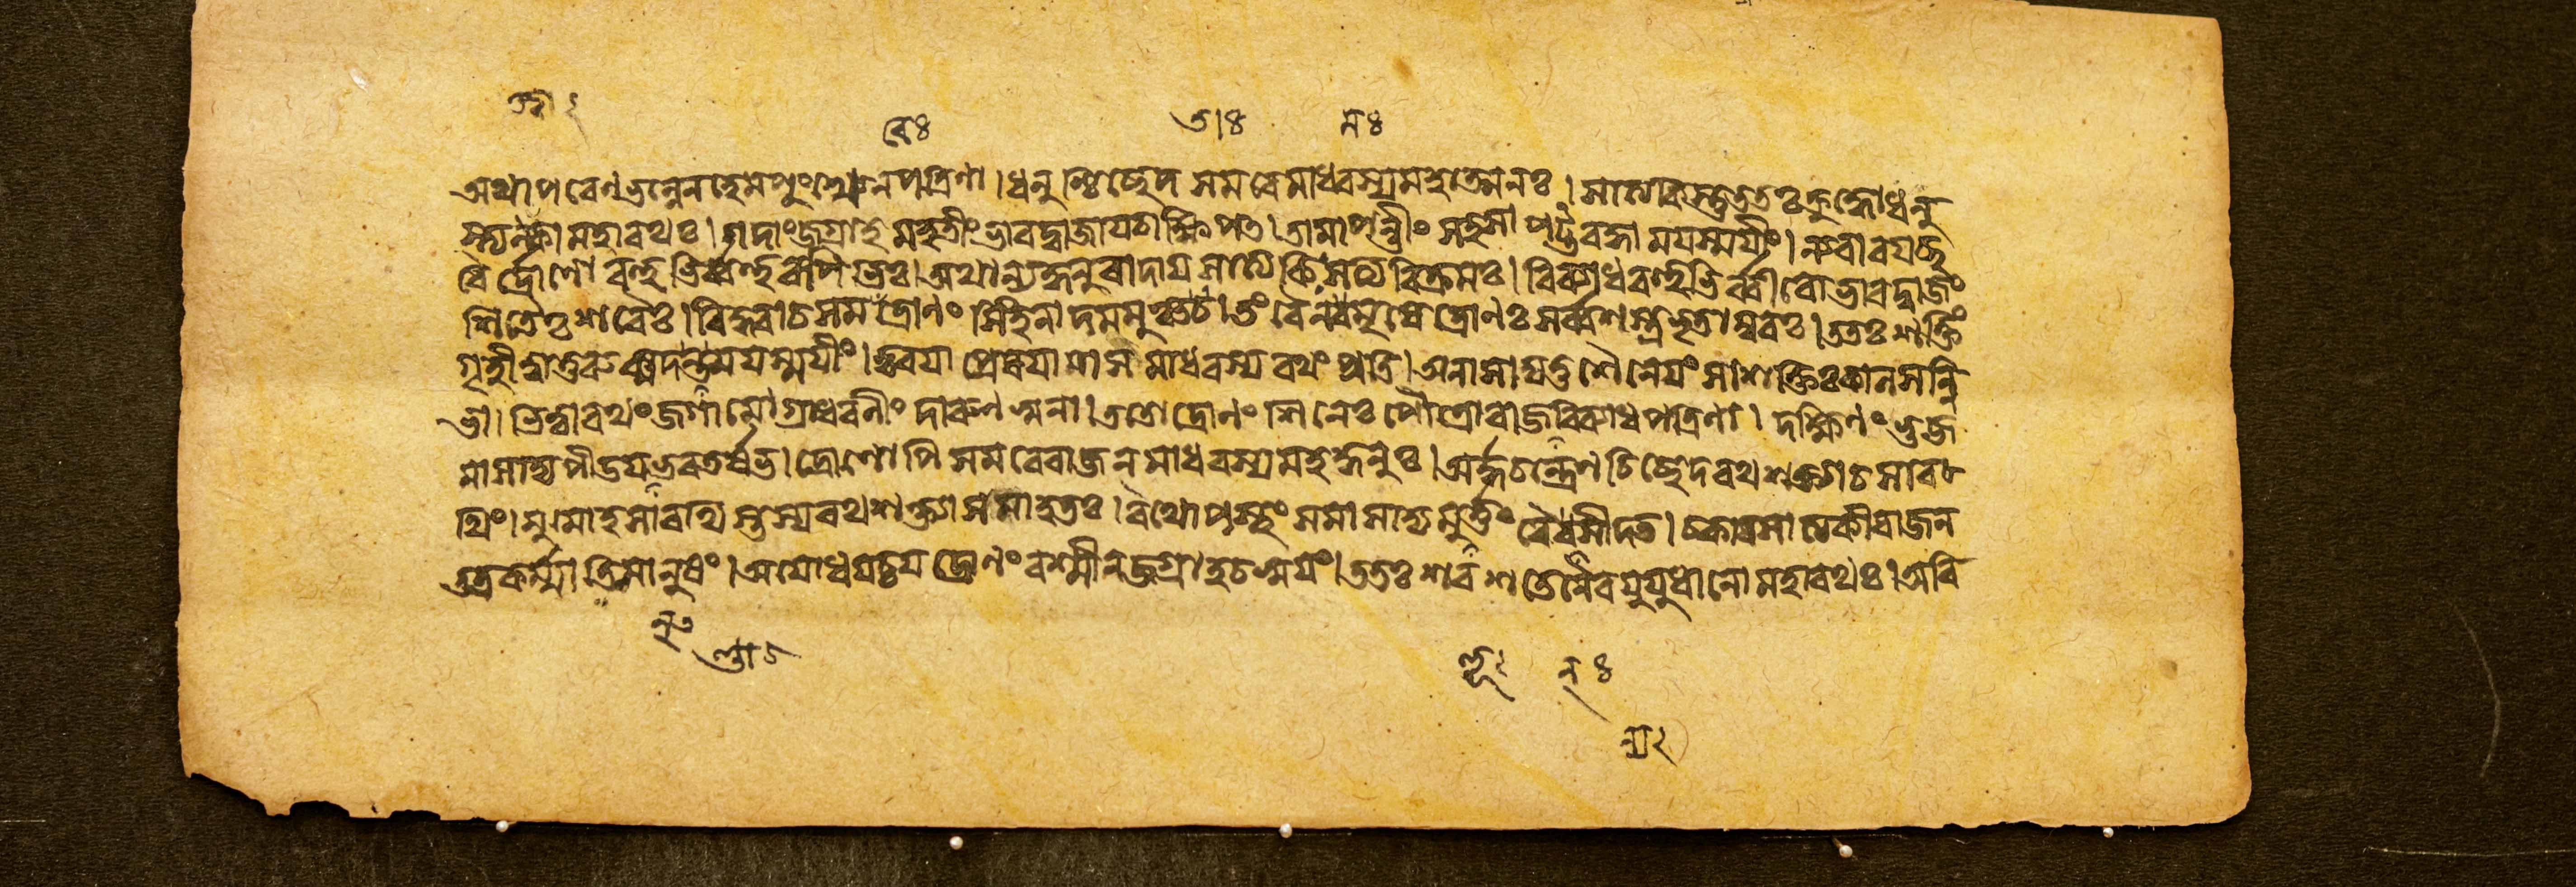 ত্মা ২
রেঃ ভাঃ নঃ
অথাপরেণ ভল্লেন হেমপুংখেন পত্রিণা । ধনুশ্চিচ্ছেদ সমরে মাধবস্য মহাত্মনঃ । সাত্যকিস্তু ততঃ ক্রুদ্ধো ধনু
স্ত্যক্ত্বা মহারথঃ । গদাং জগ্রাহ মহতীং ভারদ্বাজায চাক্ষিপৎ । তামাপতন্তীং সহসা পট্টবদ্ধামযস্মযীং । ন্যবারযচ্ছ
রৈর্দ্রোণো বহুভির্বহুরূপিভিঃ । অথান্যদ্ধনুরাদায সাত্যকিঃ সত্যবিক্রমঃ । বিব্যাধ বহুভির্ব্বীরো ভারদ্বাজং
শিতৈঃ শরৈঃ । বিদ্ধ্বা চ সমরে দ্রোণং সিংহনাদমমুঞ্চত । তং বৈ ন মমৃষে দ্রোণঃ সর্ব্বশস্ত্রভৃতাম্বরঃ । ততঃ শক্তিং
গৃহীত্বা তু রুক্মদণ্ডামযস্মযীং । ত্বরযা প্রেষযামাস মাধবস্য রথং প্রতি । অনাসাদ্য তু শৈনেযং সা শক্তিঃ কালসন্নি
ভা । ভিত্বা রথং জগামোগ্রা ধরণীং দারুণস্বনা । ততো দ্রোণং শিনেঃ পৌত্রো রাজন্বিব্যাধ পত্রিণা । দক্ষিণং ভুজ
মাসাদ্য পীডযন্ভরতর্ষভ । দ্রোণোপি সমরে রাজন্ মাধবস্য মহদ্ধনুঃ । অর্দ্ধচন্দ্রেণ চিচ্ছেদ রথশক্ত্যা চ সার
থিং । মুমোহ সারথিস্তস্য রথশক্ত্যা সমাহতঃ । রথোপস্থং সমাসাদ্য মুহূর্ত্তং সংন্যষীদত । চকার সাত্যকী রাজন্
তত্র কর্ম্মাতিমানুষং । অযোধযচ্চ যদ্দ্রোণং রশ্মীন্ জগ্রাহ চ স্বযং । ততঃ শরশতেনৈব যুযুধানো মহারথঃ । অবি